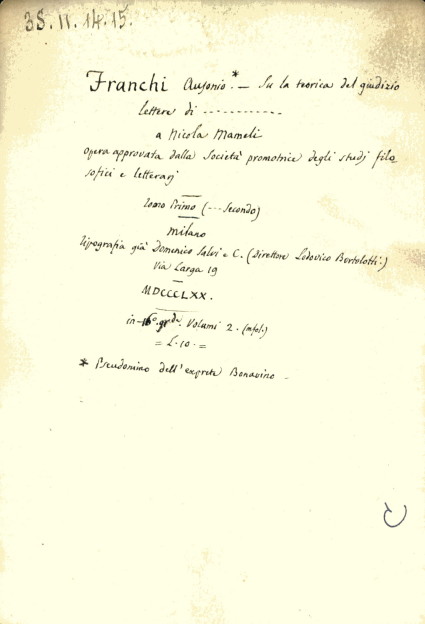 38.11.14.15.
Franchi Ausonio.* — Su la teorica del giudizio
lettere di -----------
a Nicola Mameli
opera approvata dalla Società promotrice degli studj filo
sofici e letterarj
Tomo Primo (--- Secondo)
Milano
Tipografia già Domenico Salvi e C. (Direttore Lodovico Bortolotti.)
Via Larga 19
MDCCCLXX.
in- gr. Volumi 2.
= L. 10. =
* Pseudonimo dell'exprete Bonavino -